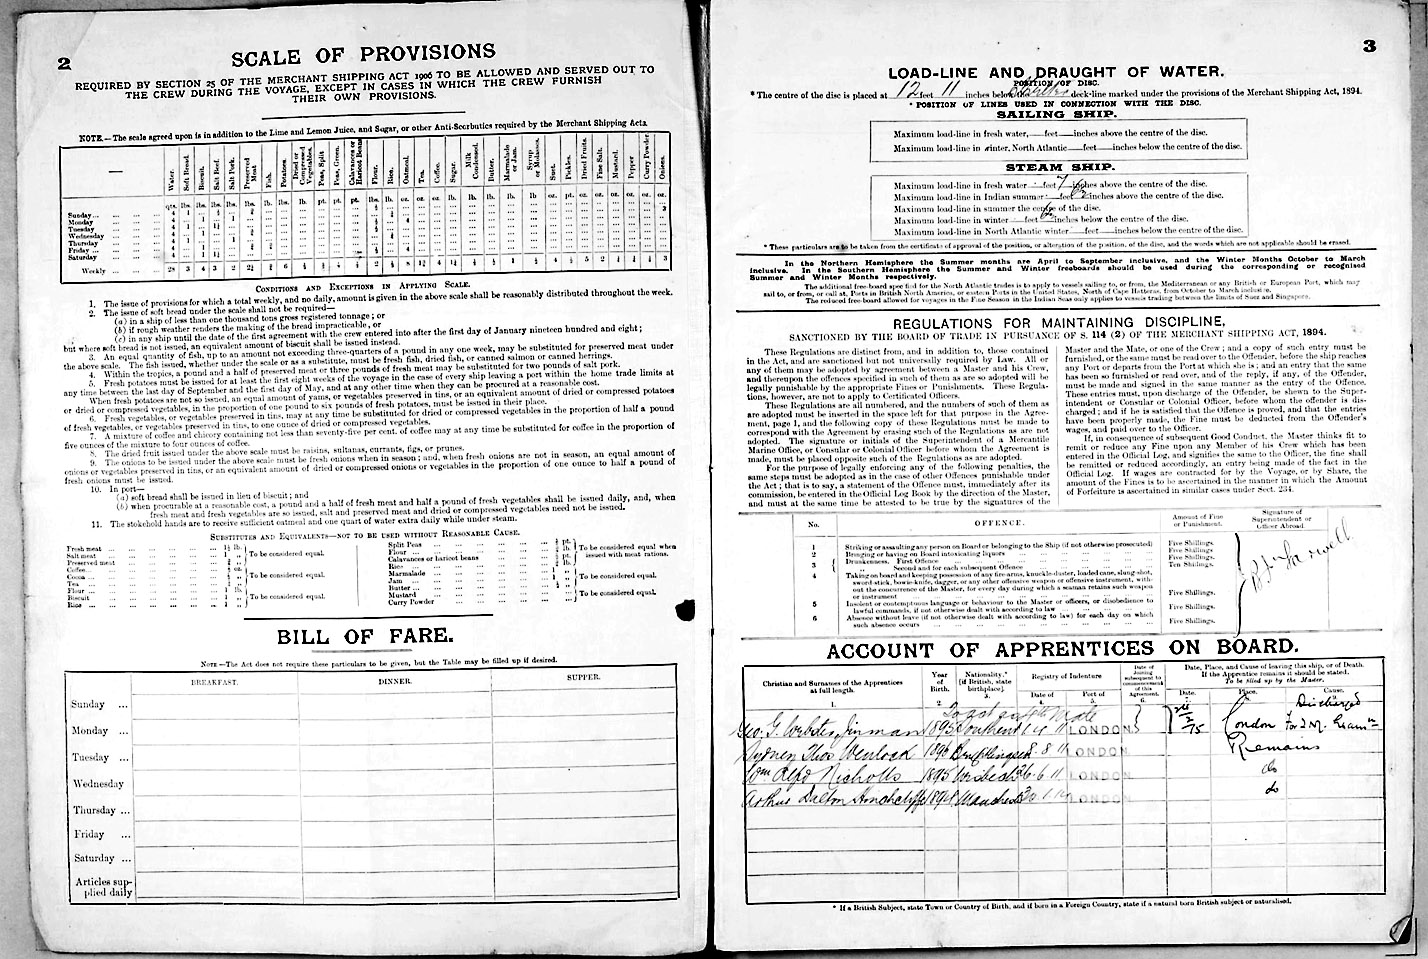 2
SCALE OF PROVISIONS
REQUIRED BY SECTION 25 OF THE MERCHANT SHIPPING ACT 1906 TO BE ALLOWED AND SERVED OUT TO
THE CREW DURING THE VOYAGE, EXCEPT IN CASES IN WHICH THE CREW FURNISH
THEIR OWN PROVISIONS.
NOTE.—The scale agreed upon is in addition to the Lime and Lemon Juice, and Sugar, or other Anti-Scorbutics required by the Merchant Shipping Acts.
Water. Soft Bread. Biscuit. Salt Beef. Salt Pork. Preserved Meat Fish. Potatoes. Dried or Compressed Vegetables. Peas, Split Peas, Green. Calavances or Haricot Beans Flour. Rice. Oatmeal. Tea. Coffee. Sugar. Milk Condensed. Butter. Marmalade or Jam. Syrup or Molasses. Suet. Pickles. Dried Fruits. Fine Salt. Mustard. Pepper Curry Powder. Onions.
Sunday
Monday
Tuesday
Wednesday
Thursday
Friday
Saturday
Weekly
CONDITIONS AND EXCEPTIONS IN APPLYING SCALE.
1. The issue of provisions for which a total weekly, and no daily, amount is given in the above scale shall be reasonably distributed throughout the week.
2. The issue of soft bread under the scale shall not be required—
(a) in a ship of less than one thousand tons gross registered tonnage; or
(b) if rough weather renders the making of the bread impracticable, or
(c) in any ship until the date of the first agreement with the crew entered into after the first day of January nineteen hundred and eight;
but where soft bread is not issued, an equivalent amount of biscuit shall be issued instead.
3. An equal quantity of fish, up to an amount not exceeding three-quarters of a pound in any one week, may be substituted for preserved meat under
the above scale. The fish issued, whether under the scale or as a substitute, must be fresh fish, dried fish, or canned salmon or canned herrings.
4. Within the tropics, a pound and a half of preserved meat or three pounds of fresh meat may be substituted for two pounds of salt pork.
5. Fresh potatoes must be issued for at least the first eight weeks of the voyage in the case of every ship leaving a port within the home trade limits at
any time between the last day of September and the first day of May, and at any other time when they can be procured at a reasonable cost.
When fresh potatoes are not so issued, an equal amount of yams, or vegetables preserved in tins, or an equivalent amount of dried or compressed potatoes
or dried or compressed vegetables, in the proportion of one pound to six pounds of fresh potatoes, must be issued in their place.
6. Fresh vegetables, or vegetables preserved in tins, may at any time be substituted for dried or compressed vegetables in the proportion of half a pound
of fresh vegetables, or vegetables preserved in tins, to one ounce of dried or compressed vegetables.
7. A mixture of coffee and chicory containing not less than seventy-five per cent. of coffee may at any time be substituted for coffee in the proportion of
five ounces of the mixture to four ounces of coffee.
8. The dried fruit issued under the above scale must be raisins, sultanas, currants, figs, or prunes.
9. The onions to be issued under the above scale must be fresh onions when in season; and, when fresh onions are not in season, an equal amount of
onions or vegetables preserved in tins, or an equivalent amount of dried or compressed onions or vegetables in the proportion of one ounce to half a pound of
fresh onions must be issued.
10. In port—
(a) soft bread shall be issued in lieu of biscuit; and
(b) when procurable at a reasonable cost, a pound and a half of fresh meat and half a pound of fresh vegetables shall be issued daily, and, when
fresh meat and fresh vegetables are so issued, salt and preserved meat and dried or compressed vegetables need not be issued.
11. The stokehold hands are to receive sufficient oatmeal and one quart of water extra daily while under steam.
SUBSTITUTES AND EQUIVALENTS—NOT TO BE USED WITHOUT REASONABLE CAUSE.
Fresh meat
Salt meat
Preserved meat
To be considered equal.
Coffee
Cocoa
Tea
To be considered equal.
Flour
Biscuit
Rice
To be considered equal.
Split Peas
Flour
Calavances or haricot beans
Rice
To be considered equal when issued with meat rations.
Marmalade
Jam
Butter
To be considered equal.
Mustard
Curry Powder
To be considered equal.
BILL OF FARE.
NOTE—The Act does not require these particulars to be given, but the Table may be filled up if desired.
BREAKFAST. DINNER. SUPPER.
Sunday ...
Monday ...
Tuesday ...
Wednesday
Thursday ...
Friday ...
Saturday ...
Articles sup-
plied daily
3
LOAD-LINE AND DRAUGHT OF WATER.
POSITION OF DISC.
* The centre of the disc is placed at 12 feet 11 inches below deck-line marked under the provisions of the Merchant Shipping Act, 1894.
* POSITION OF LINES USED IN CONNECTION WITH THE DISC.
SAILING SHIP.
Maximum load-line in fresh water,—feet—inches above the centre of the disc.
Maximum load-line in winter, North Atlantic—feet—inches below the centre of the disc.
STEAM SHIP.
Maximum load-line in fresh water - feet 7 inches above the centre of the disc.
Maximum load-line in Indian summer - feet inches above the centre of the disc.
Maximum load-line in summer the centre of the disc.
Maximum load-line in winter — feet inches below the centre of the disc.
Maximum load-line in North Atlantic winter feet—inches below the centre of the disc.
* These particulars are to be taken from the certificate of approval of the position, or alteration of the position, of the disc, and the words which are not applicable should be erased.
In the Northern Hemisphere the Summer months are April to September inclusive, and the Winter Months October to March
inclusive. In the Southern Hemisphere the Summer and Winter freeboards should be used during the corresponding or recognised
Summer and Winter Months respectively.
The additional free-board specified for the North Atlantic trades is to apply to vessels sailing to, or from, the Mediterranean or any British or European Port, which may
sail to, or from, or call at, Ports in British North America, or eastern Ports in the United States, North of Cape Hatteras, from October to March inclusive.
The reduced free-board allowed for voyages in the Fine Season in the Indian Seas only applies to vessels trading between the limits of Suez and Singapore.
REGULATIONS FOR MAINTAINING DISCIPLINE,
SANCTIONED BY THE BOARD OF TRADE IN PURSUANCE OF S. 114 (2) OF THE MERCHANT SHIPPING ACT, 1894.
These Regulations are distinct from, and in addition to, those contained
in the Act, and are sanctioned but not universally required by Law. All or
any of them may be adopted by agreement between a Master and his Crew,
and thereupon the offences specified in such of them as are so adopted will be
legally punishable by the appropriate Fines or Punishments. These Regula-
tions, however, are not to apply to Certificated Officers.
These Regulations are all numbered, and the numbers of such of them as
are adopted must be inserted in the space left for that purpose in the Agree-
ment, page 1, and the following copy of these Regulations must be made to
correspond with the Agreement by erasing such of the Regulations as are not
adopted. The signature or initials of the Superintendent of a Mercantile
Marine Office, or Consular or Colonial Officer before whom the Agreement is
made, must be placed opposite such of the Regulations as are adopted.
For the purpose of legally enforcing any of the following penalties, the
same steps must be adopted as in the case of other Offences punishable under
the Act; that is to say, a statement of the Offence must, immediately after its
commission, be entered in the Official Log Book by the direction of the Master,
and must at the same time be attested to be true by the signatures of the
Master and the Mate, or one of the Crew; and a copy of such entry must be
furnished, or the same must be read over to the Offender, before the ship reaches
any Port or departs from the Port at which she is; and an entry that the same
has been so furnished or read over, and of the reply, if any, of the Offender,
must be made and signed in the same manner as the entry of the Offence.
These entries must, upon discharge of the Offender, be shewn to the Super-
intendent or Consular or Colonial Officer, before whom the offender is dis-
charged; and if he is satisfied that the Offence is proved, and that the entries
have been properly made, the Fine must be deducted from the Offender's
wages, and paid over to the Officer.
If, in consequence of subsequent Good Conduct, the Master thinks fit to
remit or reduce any Fine upon any Member of his Crew which has been
entered in the Official Log, and signifies the same to the Officer, the fine shall
be remitted or reduced accordingly, an entry being made of the fact in the
Official Log. If wages are contracted for by the Voyage, or by Share, the
amount of the Fines is to be ascertained in the manner in which the Amount
of Forfeiture is ascertained in similar cases under Sect. 234.
No. OFFENCE. Amount of Fine or Punishment. Signature of Superintendent or Officer Abroad.
1 Striking or assaulting any person on Board or belonging to the Ship (if not otherwise prosecuted) Five Shillings.
2 Bringing or having on Board intoxicating liquors Five Shillings.
3 Drunkenness. First Offence Five Shillings.
Second and for each subsequent Offence Ten Shillings.
4 Taking on board and keeping possession of any fire-arms, knuckle-duster, loaded cane, slung-shot,
sword-stick, bowie-knife, dagger, or any other offensive weapon or offensive instrument, with-
out the concurrence of the Master, for every day during which a seaman retains such weapon
or instrument Five Shillings.
5 Insolent or contemptuous language or behaviour to the Master or officers, or disobedience to
lawful commands, if not otherwise dealt with according to law Five Shillings.
6 Absence without leave (if not otherwise dealt with according to law) for each day on which
such absence occurs Five Shillings.
ACCOUNT OF APPRENTICES ON BOARD.
Christian and Surnames of the Apprentices at full length. Year of Birth. Nationality.* [if British, state birthplace]. Registry of Indenture Date of Port of Date of Joining subsequent to commencement of this Agreement. Date, Place, and Cause of leaving this ship, or of Death. If the Apprentice remains it should be stated. To be filled up by the Master. Date. Place. Cause.
1. 2. 3. 4. 5. 6.
Geo. G. Webster Jinman 1895 LONDON London Discharged
Sydney Thos Wenlock 1896 8 8 11 LONDON Remains
Wm Alfd Nicholls 1895 Wisbech 26.6.11 LONDON do
Arthur Dalton Hinchcliffe 1898 Manchester LONDON do
* If a British Subject, state Town or Country of Birth, and if born in a Foreign Country, state if a natural born British subject or naturalised.